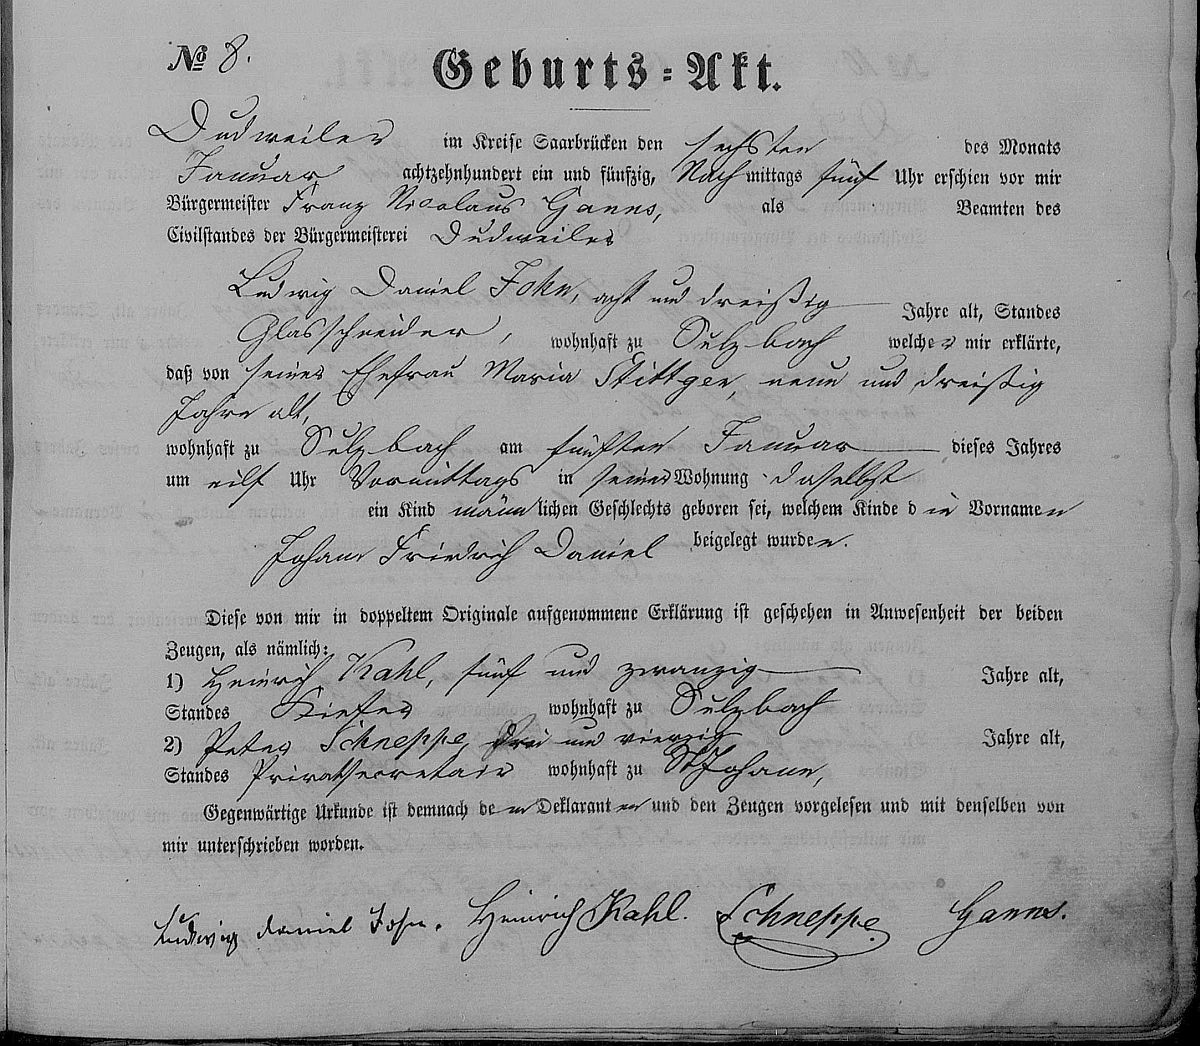 No 8.
Geburts=Akt.
Dudweiler im Kreise Saarbrücken den sechsten des Monats
Januar achtzehnhundert ein und fünfzig, Nachmittags fünf Uhr erschien vor mir
Bürgermeister Franz Nicolaus Hanns, als Beamten des
Civilstandes der Bürgermeisterei Dudweiler
Ludwig Daniel John, acht und dreißig Jahre alt, Standes
Glasschneider, wohnhaft zu Sulzbach welcher mir erklärte,
daß von seiner Ehefrau Maria Stittgen, neun und dreißig
Jahre alt,
wohnhaft zu Sulzbach am fünften Januar dieses Jahres
um eilf Uhr Vormittags in seiner Wohnung daselbst
ein Kind männlichen Geschlechts geboren sei, welchem Kinde die Vornamen
Johann Friedrich Daniel beigelegt wurden.
Diese von mir in doppeltem Originale aufgenommene Erklärung ist geschehen in Anwesenheit der beiden
Zeugen, als nämlich:
1) Heinrich Kahl, fünf und zwanzig Jahre alt,
Standes Kiefer wohnhaft zu Sulzbach
2) Peter Schneppe, drei und vierzig Jahre alt,
Standes Privatsecretair wohnhaft zu St Johann,
Gegenwärtige Urkunde ist demnach dem Deklaranten und den Zeugen vorgelesen und mit denselben von
mir unterschrieben worden.
Ludwig Daniel John. Heinrich Kahl. Schneppe Hanns.